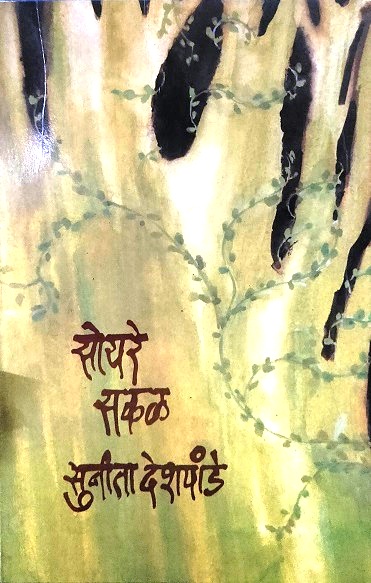 सोयरे
सकळ
सुनीता देशपांडे